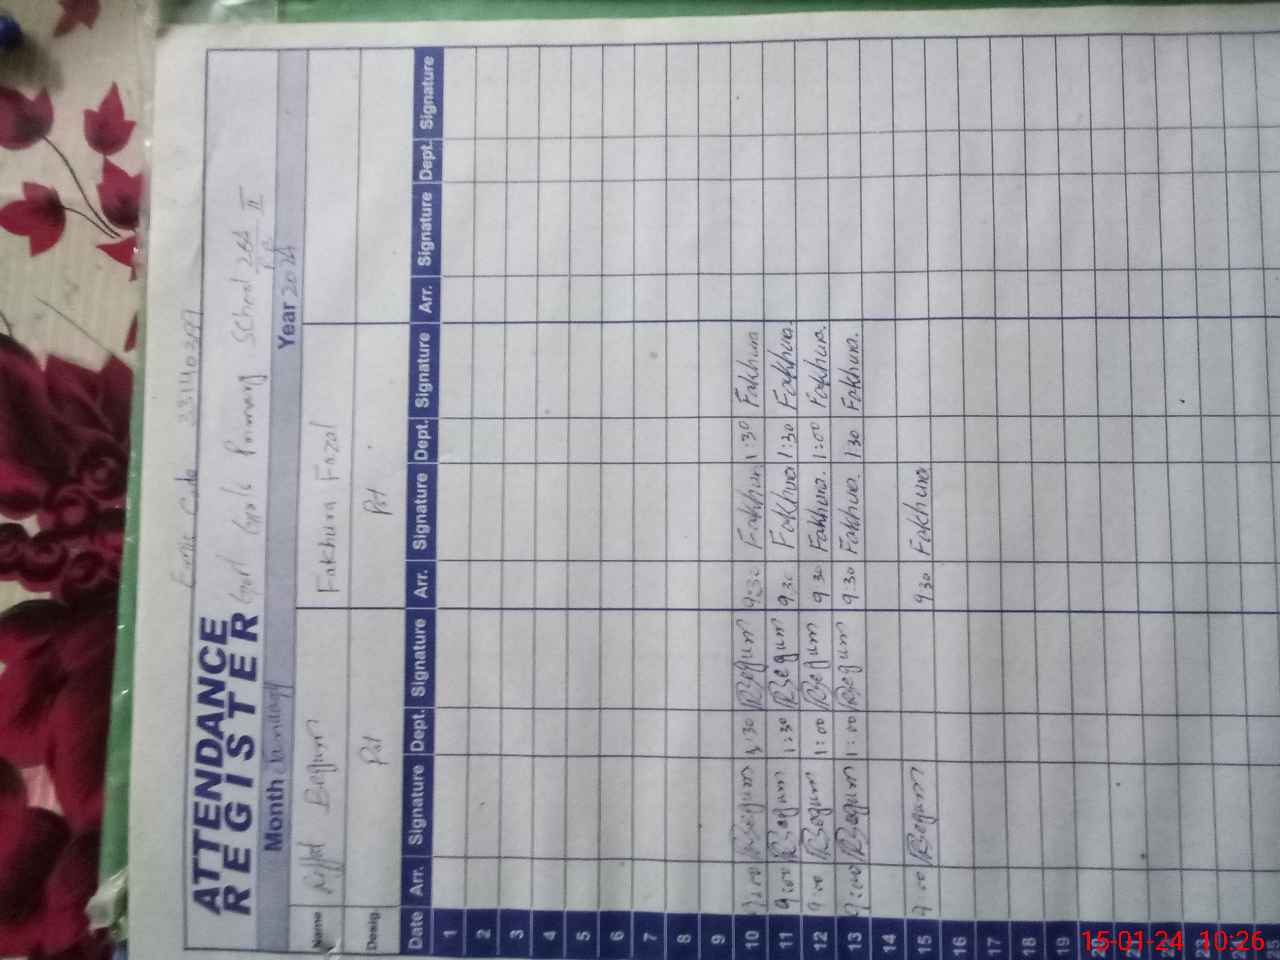 Code 33140397
ATTENDANCE
REGISTER Govt Girls Primary School
Month January Year 2024
Name Riffat Begum Fakhura Fazal
Desig. Pst Pst
Date Arr. Signature Dept. Signature Arr. Signature Dept. Signature Arr. Signature Dept. Signature
1
2
3
4
5
6
7
8
9
10 9:00 RBegum 1:30 RBegum 9:30 Fakhura 1:30 Fakhura
11 9:00 RBegum 1:30 RBegum 9:30 Fakhura 1:30 Fakhura.
12 9:00 RBegum 1:00 RBegum 9 30 Fakhura. 1:00 Fakhura.
13 9:00 RBegum 1:00 RBegum 9.30 Fakhura. 1 30 Fakhura.
14
15 9:00 RBegum 9.30 Fakhura
16
17
18
19
20
21
22
23
24
25
15-01-24 10:26